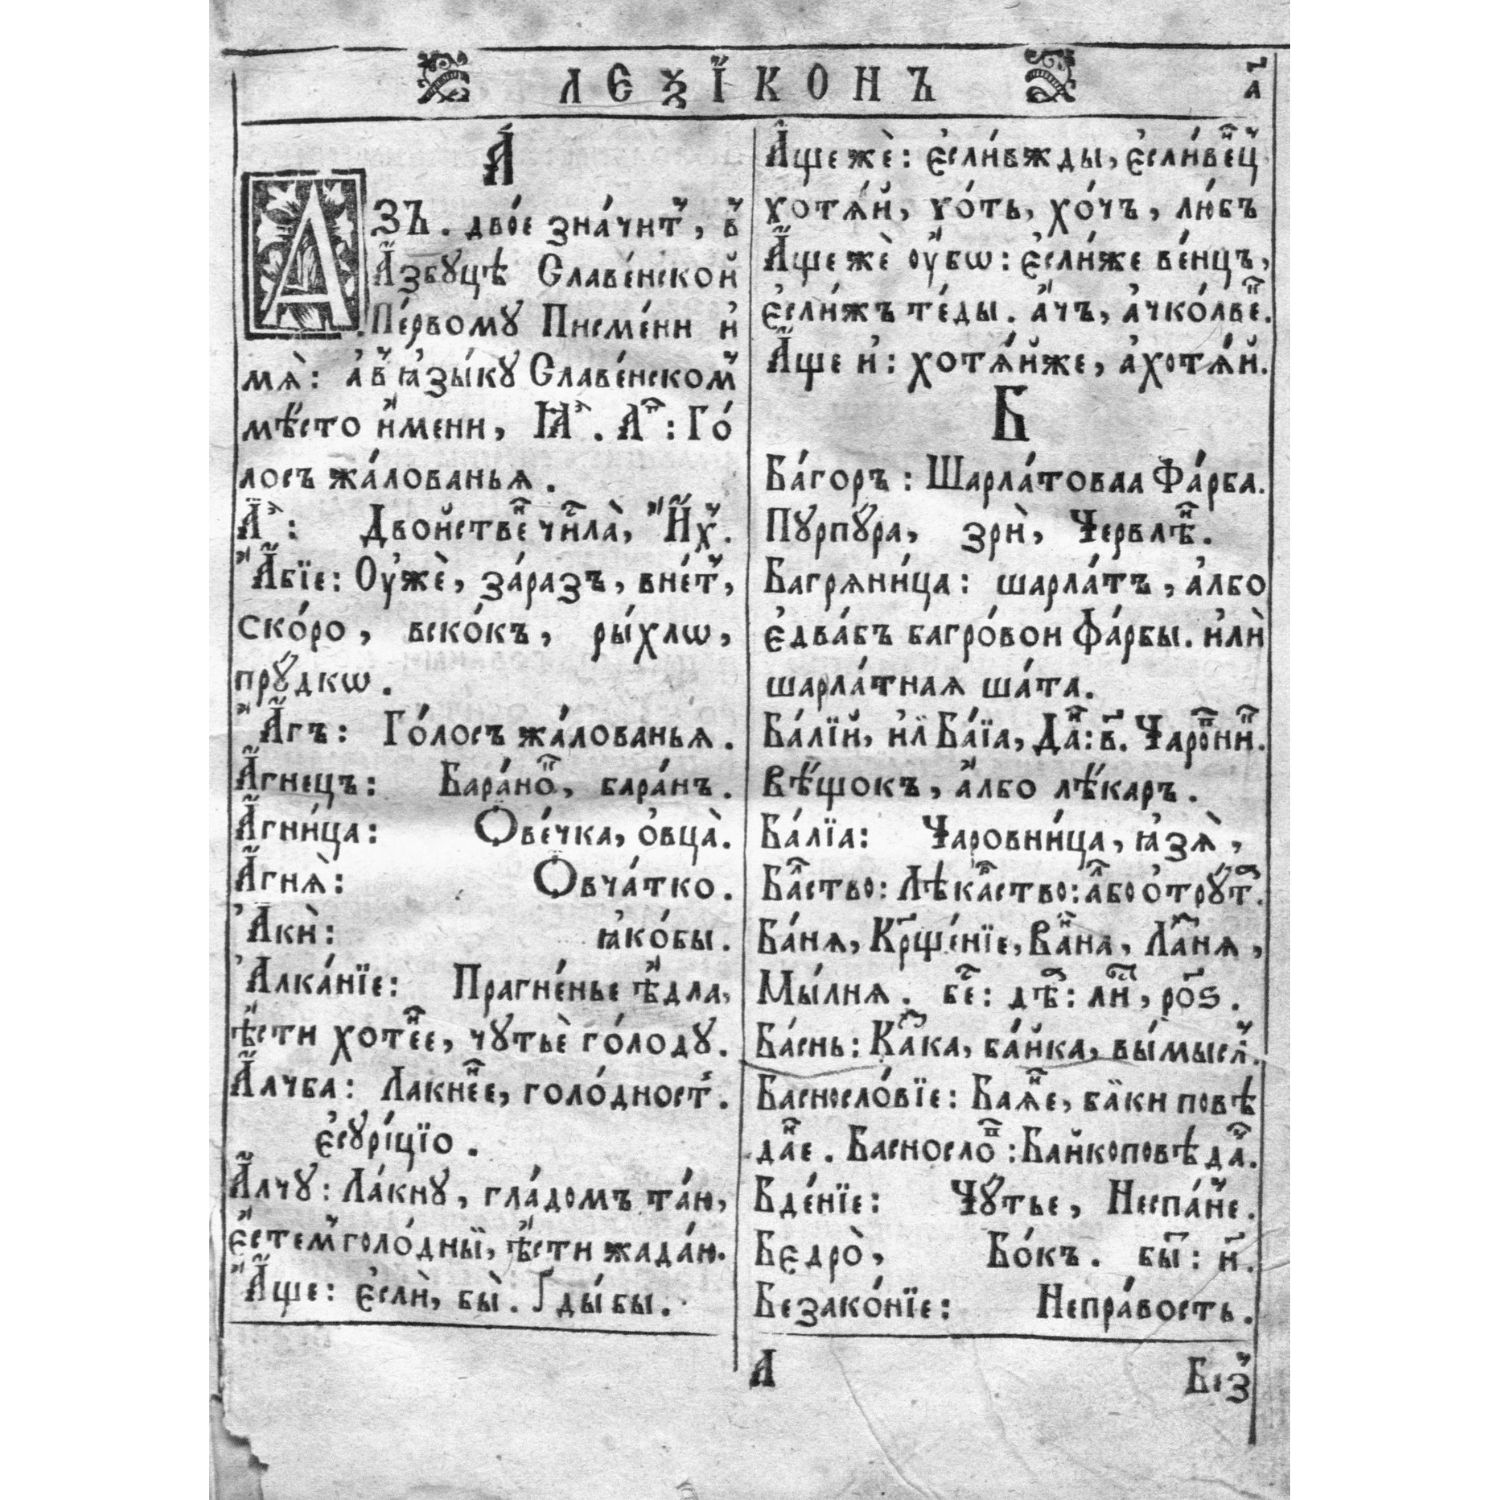 ЛЕѮЇКОНЪ
а҃
А҆́
АЗЪ. двое зна́читъ, в̾
А҆збꙋцѣ Славе́нской
Пе́рвомꙋ Писме́ни и҆
мѧ̀: а҆ в̾ ꙗ҆зы́кꙋ Славе́нскомъ
мѣ́сто и҆́мени, Ꙗ҆̀. А҆ⷫ҇: Го́
лосъ жа́лованьѧ.
А҆̈: Двойствеⷩ҇ чиⷭ҇ла̀, И҆́хъ.
А҆́бїе: Оу҆жѐ, за́разъ, вне́тъ,
ско́ро, вско́къ, ры́хлѡ,
прꙋ́дкѡ.
А҆́гъ: Го́лосъ жа́лованьѧ.
А҆́гнецъ: Бара́ноⷦ҇, бара́нъ.
А҆́гница: Ове́чка, о҆вца̀.
А҆гнѧ̀: Овча́тко.
А҆кѝ: ꙗ҆ко́бы.
А҆лка́нїе: Прагне́нье ѣ҆́дла,
ѣ҆́сти хотѣⷩ҇е, чꙋтьѐ го́лодꙋ.
А҆́лчба: Лакнеⷩ҇е, голо́дност̾.
є҆сꙋрі́цїо.
А҆́лчꙋ: Ла́кнꙋ, гла́домъ та́ю,
є҆́стем̾ голо́дный, ѣ҆́сти жада́ю.
А҆́ще: є҆слѝ, бы̀. Гды́бы.
А҆́щежѐ: є҆сли́вжды, є҆сли́вєⷩ҇ц̾
хотѧ́й, хо́ть, хо́чъ, лю́бъ
А҆́щежѐ оу҆́бѡ: є҆сли́же ве́нцъ,
є҆сли́жъ те́ды. а҆́чъ, а҆чко́лвеⷦ҇.
А҆́ще и҆: хотѧ́йже, а҆хотѧ́й.
Б
Ба́горъ: Шарла́товаа Фа́рба.
Пꙋрпꙋ́ра, зрѝ, Червлѣⷩ҇.
Багрѧни́ца: шарла́тъ, а҆́лбо
є҆два́бъ багро́вои фа́рбы. и҆лѝ
шарла́тная ша́та.
Ба́лїй, и҆л̾ Ба́їа, Даⷩ҇: в҃. Чароⷡ҇ниⷦ҇.
Вѣ́щокъ, а҆́лбо лѣ́каръ.
Ба́лїа: Чаровни́ца, ꙗ҆зѧ̀,
Баⷧ҇ство: Лѣкаⷬ҇ство: аⷧ҇бо о҆трꙋ́т̾.
Ба́нѧ, Крⷭ҇ще́нїе, Ваⷩ҇на, Лаⷥ҇нѧ,
Мы́лнѧ. беⷭ҇: дѣⷶ҇: лиⷭ҇, рѻ҃ѕ.
Ба́снь: Каⷥ҇ка, ба́йка, вы́мысл̾.
Басносло́вїе: Баѧⷩ҇е, ба̀ки повѣ
даⷩ҇е. Баснослоⷡ҇: Байкоповѣдаⷱ҇.
Бде́нїе: Чꙋ́тье, Неспа́н̾е.
Бедро̀, Бо́къ. быⷮ҇: н҃.
Безако́нїе: Непра́вость.
А
Без̾